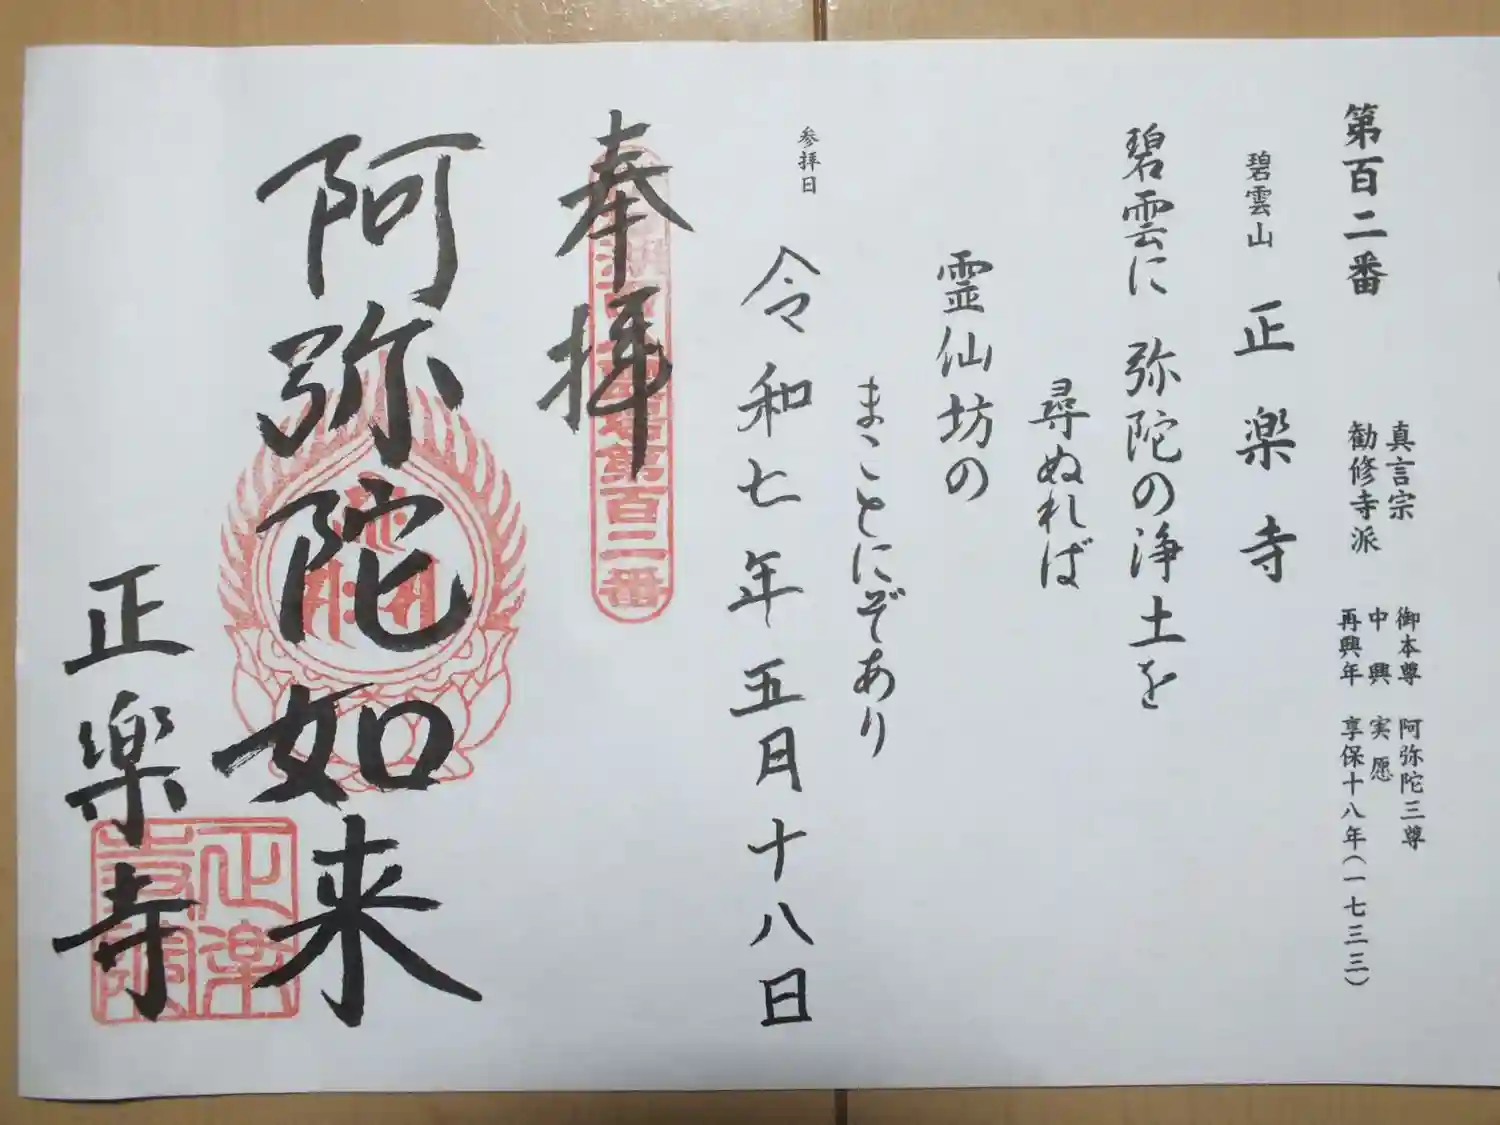 第百二番
碧雲山 正楽寺
真言宗
勧修寺派
御本尊 阿弥陀三尊
中興 実愿
再興年 享保十八年(一七三三)
碧雲に 弥陀の浄土を
尋ぬれば
霊仙坊の
まことにぞあり
参拝日
令和七年五月十八日
奉拝
第百二番
阿弥陀如来
正楽寺
正楽